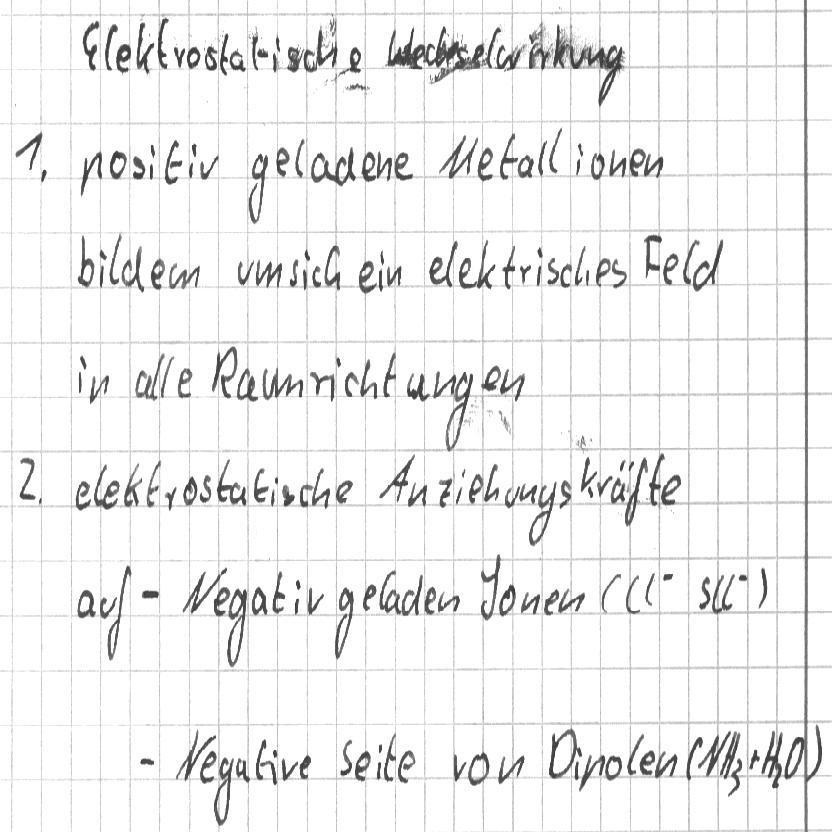 Elektrostatische Wechselwirkung
1. positiv geladene Metallionen
bildem umsich ein elektrisches Feld
in alle Raumrichtungen
2. elektrostatische Anziehungskräfte
auf - Negativ geladen Ionen (Cl⁻
- Negative Seite von Dipolen (NH₃+H₂O)